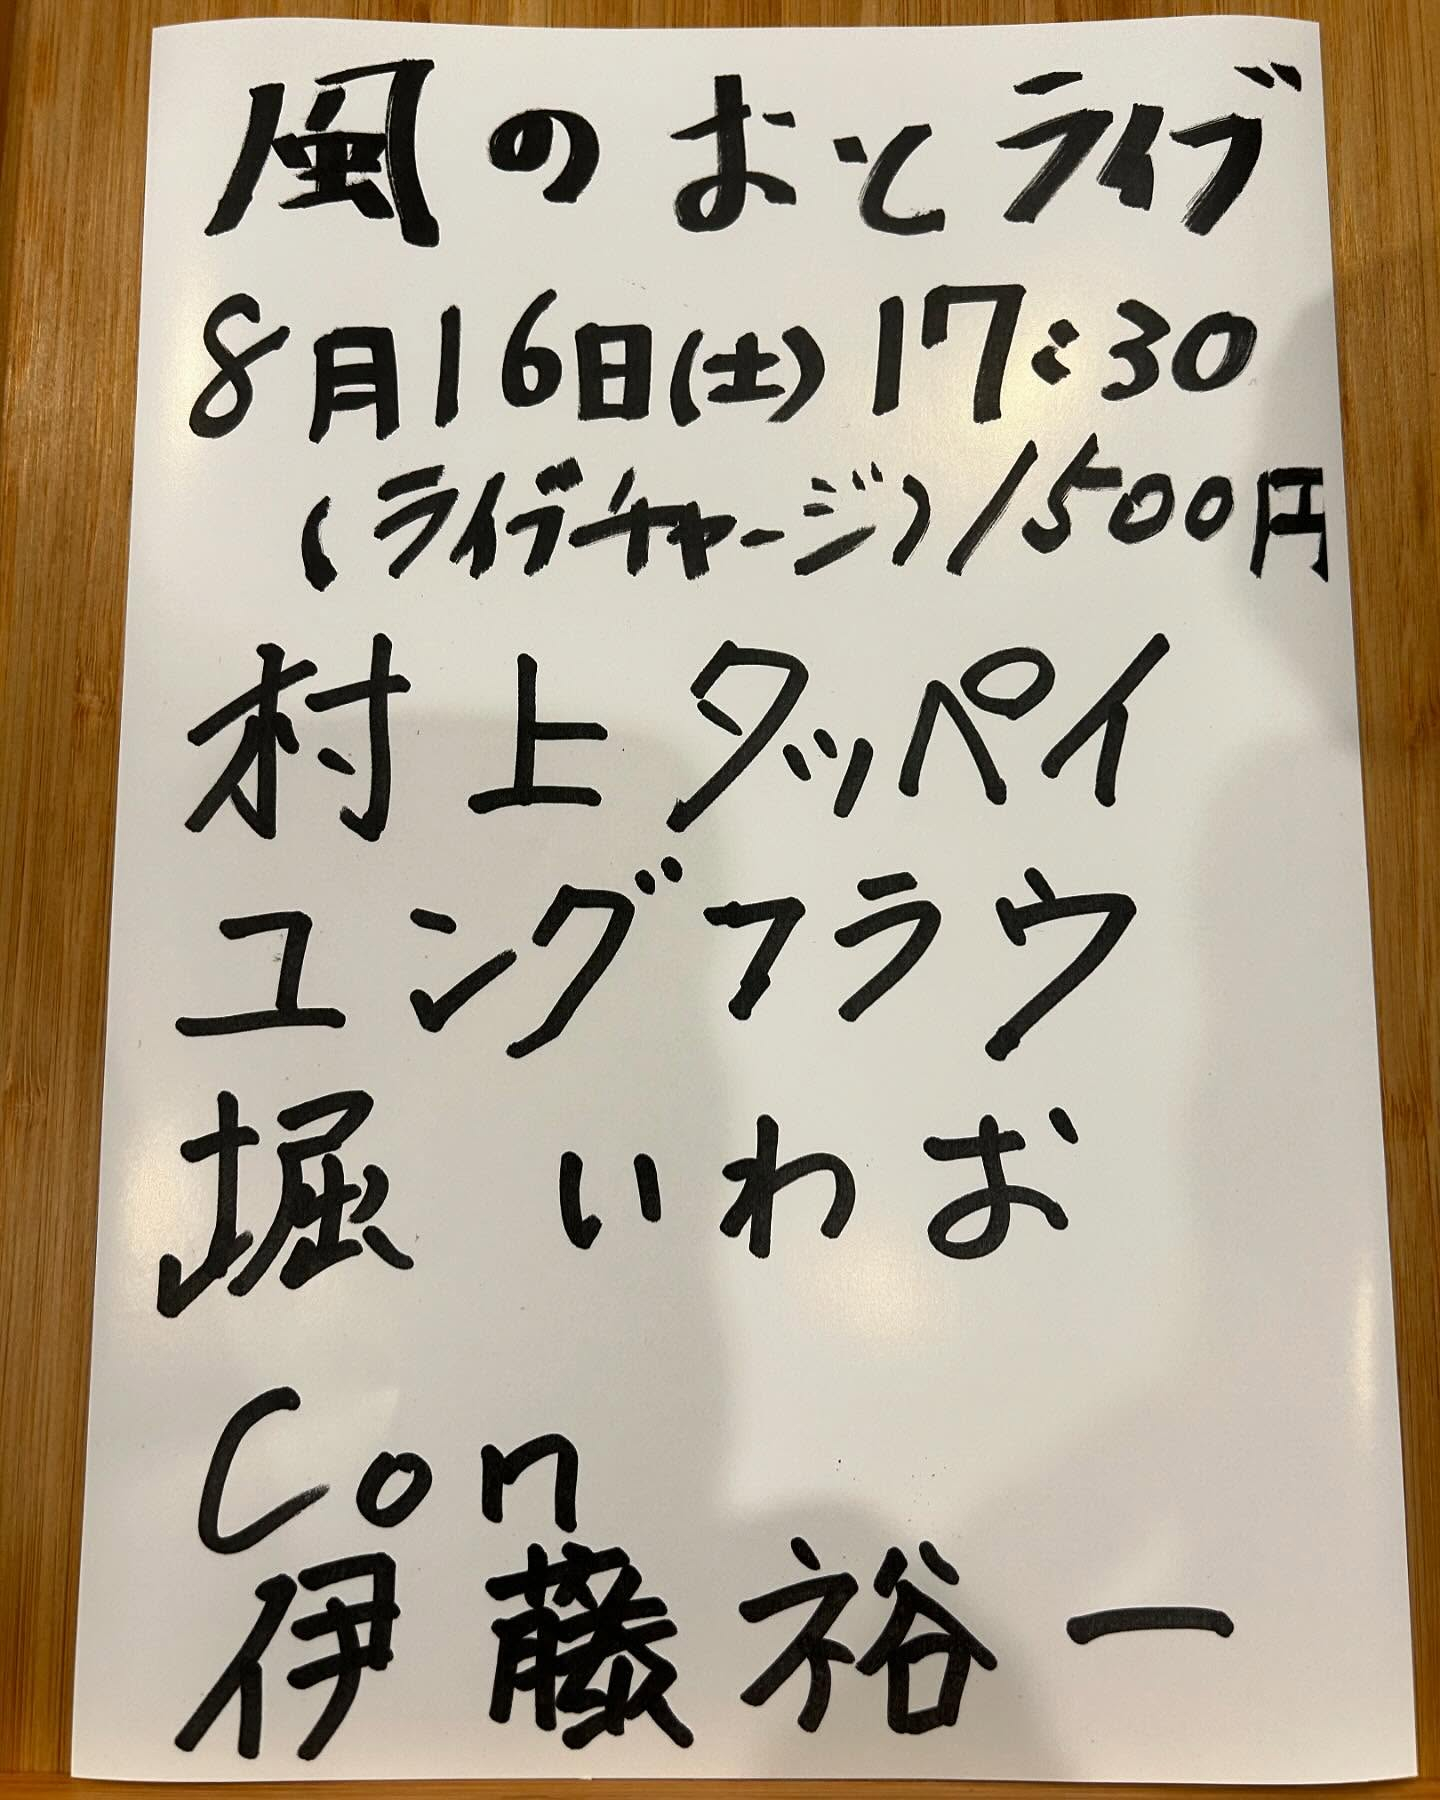 風のおとライブ
8月16日(土)17:30
(ライブチャージ)1500円
村上タッペイ
ユングフラウ
堀いわお
Con
伊藤裕一